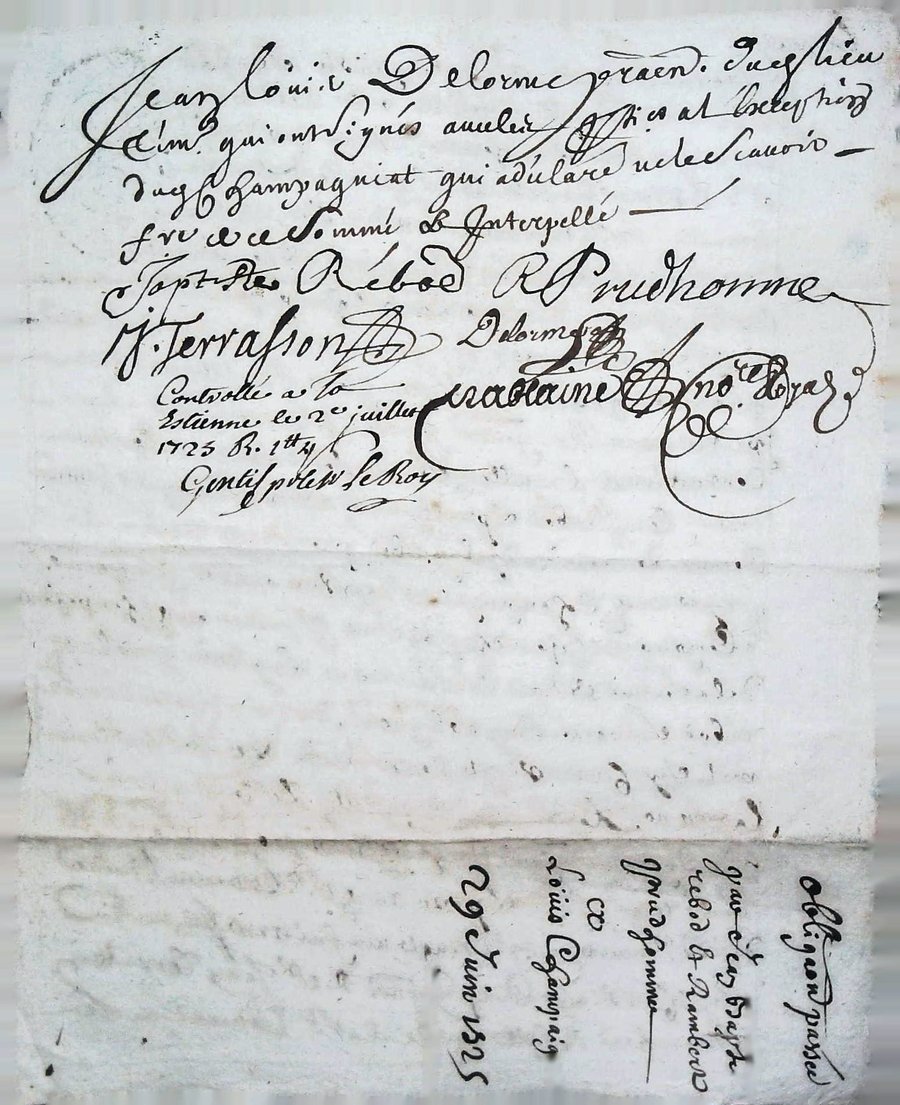 Jean Louis Delorme praen. dud lieu
tém. qui ont signés avec les parties a l'exception
dud Champagniat qui a déclaré ne le scavoir
fre de ce sommé & Interpellé
Baptiste Rébod R Prudhomme
J. Terrasson Delorme
Controllé a St
Estienne le 2e juillet
1725 R. 1tt 4
Gentis pour le Roy
no.re Royal
obligaon passée
par Jean Bapte
rebod et Rambert
prudhomme
a
Louis Champaig
29 Juin 1725